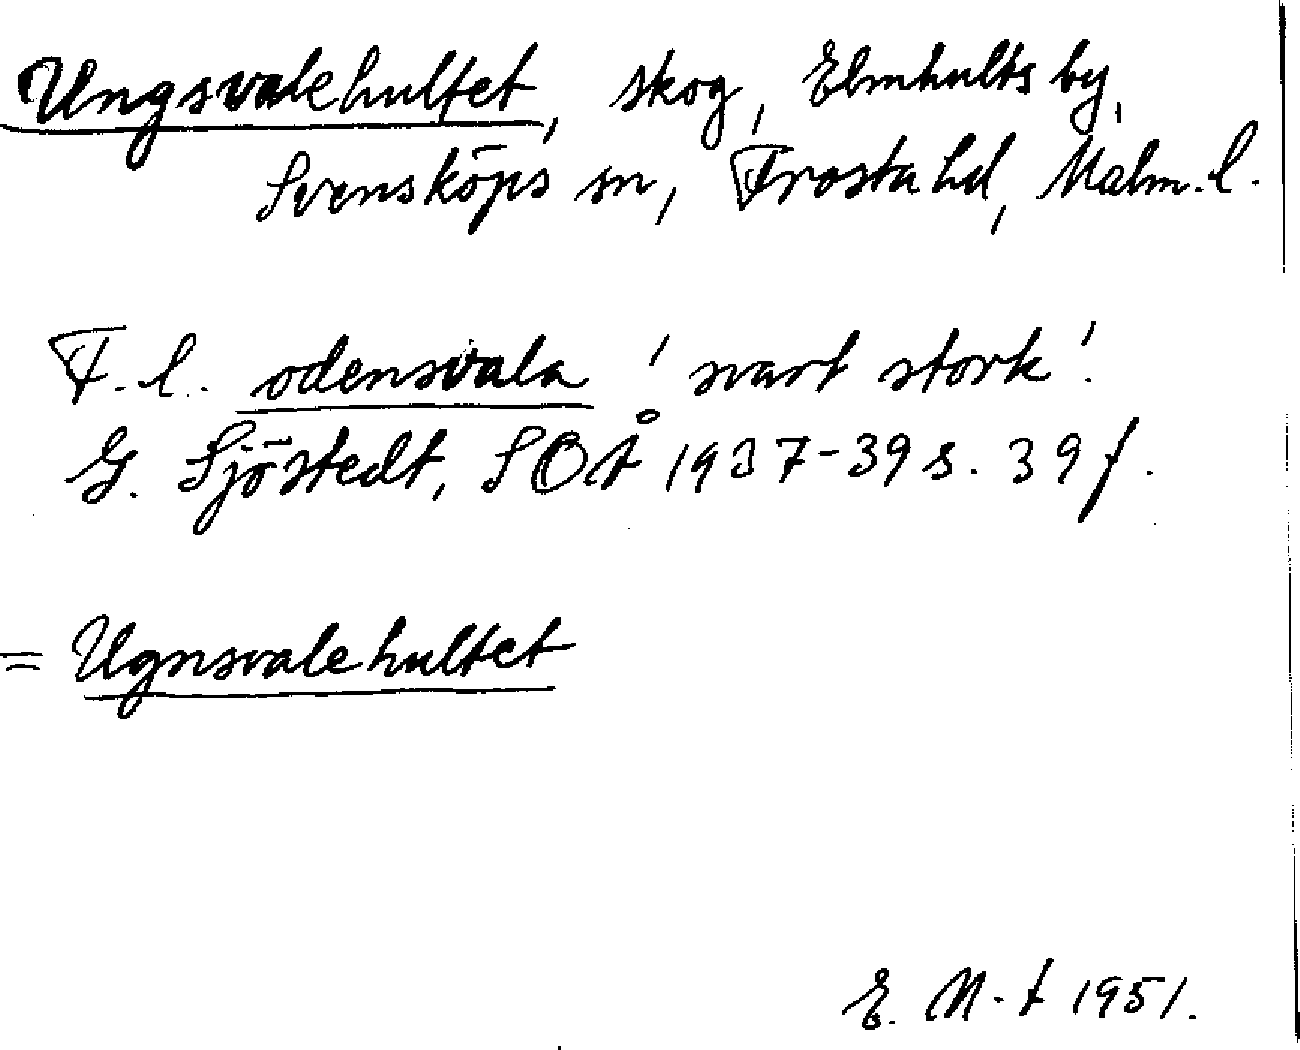 Ungsvalehultet, skog, Elmhults by,
Svensköps sn, Frosta hd, Malm. l.
F. l. odensvala 'svart stork'.
G. Sjöstedt, SOÅ 1937-39 s. 39 f.
= Ugnsvalehultet
E. M-t 1951.